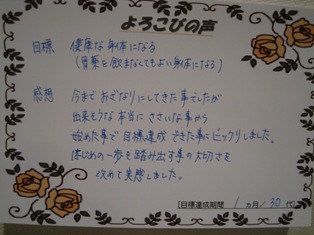 よろこびの声
目標 健康な身体になる
(胃薬を飲まなくてもよい身体になる)
感想 今まで おざなりにしてきた事でしたが
出来そうな本当に ささいな事から
始めた事で 目標達成 できた事にビックリしました。
はじめの一歩を踏み出す事の大切さを
改めて実感しました。
[目標達成期間 1 カ月/30代]